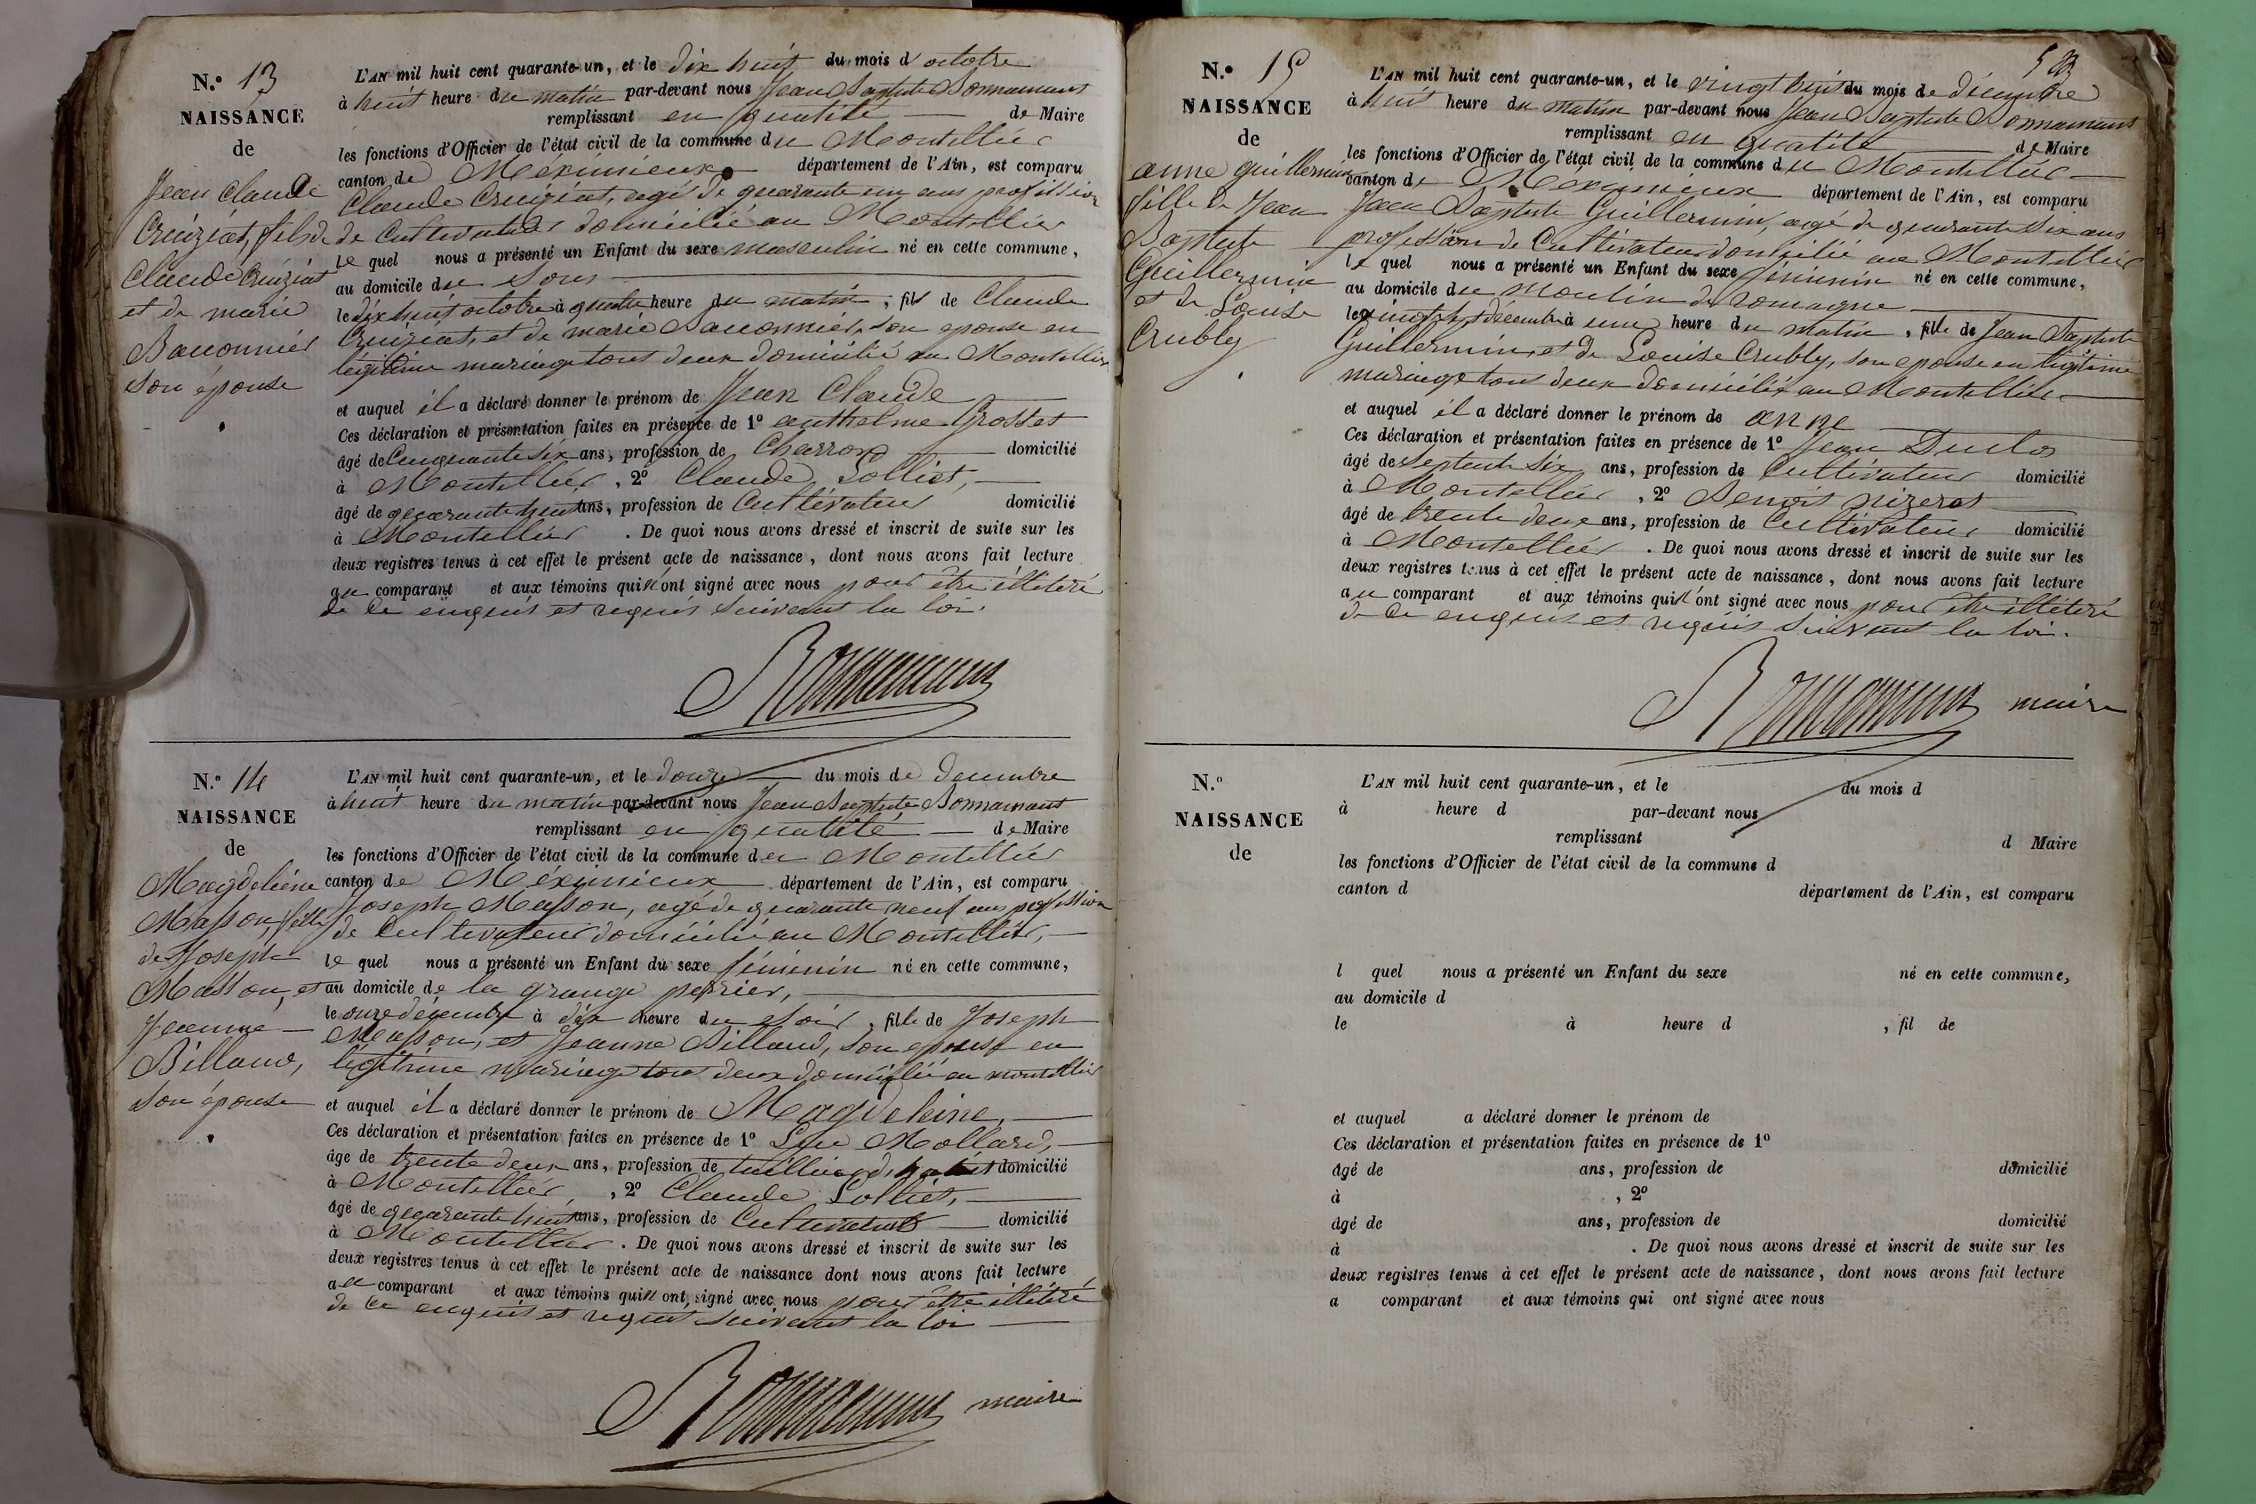 N.° 13
NAISSANCE
de
Jean Claude
Cruiziat, fils de
Claude Cruiziat
et de marie
Baconnier
son épouse
L'AN mil huit cent quarante-un, et le dix huit du mois d'octobre
à huit heure du matin par-devant nous Jean Baptiste Bonnamant
remplissant en qualité de Maire
les fonctions d'Officier de l'état civil de la commune du Montellier
canton de Méximieux département de l'Ain, est comparu
Claude Cruiziat, agé de quarante un ans profession
de Cultivateur domicilié au Montellier
le quel nous a présenté un Enfant du sexe masculin né en cette commune,
au domicile du
le dix huit octobre à quatre heure du matin, fils de Claude
Cruiziat, et de marie Baconnier, son epouse en
légitime mariage tous deux domicilié au Montellier
et auquel il a déclaré donner le prénom de Jean Claude
Ces déclaration et présentation faites en présence de 1° anthelme Grosset
âgé de Cinquante six ans, profession de Charron domicilié
à Montellier, 2° Claude Solliet,
âgé de quarante huit ans, profession de Cultivateur domicilié
à Montellier. De quoi nous avons dressé et inscrit de suite sur les
deux registres tenus à cet effet le présent acte de naissance, dont nous avons fait lecture
au comparant et aux témoins qui n'ont signé avec nous pour être illétéré
de ce enquis et requis suivant la loi.
Bonnamant
N.° 14
NAISSANCE
de
Magdeleine
Masson, fille
de Joseph
Masson, et
Jeanne
Billaud,
son épouse
L'AN mil huit cent quarante-un, et le douze du mois de decembre
à huit heure du matin par-devant nous Jean Baptiste Bonnamant
remplissant en qualité de Maire
les fonctions d'Officier de l'état civil de la commune du Montellier
canton de Méximieux département de l'Ain, est comparu
Joseph Masson, agé de quarante neuf ans profession
de Cultivateur domicilié au Montellier,
le quel nous a présenté un Enfant du sexe féminin né en cette commune,
au domicile de la grange perrier,
le onze décembre à dix heure du soir, fille de Joseph
Masson, et Jeanne Billaud, son epouse en
légitime mariage tous deux domicilié au montellier
et auquel il a déclaré donner le prénom de Magdeleine,
Ces déclaration et présentation faites en présence de 1° Luc Mollard,
âge de trente deux ans, profession de tuillier domicilié
à Montellier, 2° Claude Solliet,
âgé de quarante huit ans, profession de Cultivateur domicilié
à Montellier. De quoi nous avons dressé et inscrit de suite sur les
deux registres tenus à cet effet le présent acte de naissance dont nous avons fait lecture
au comparant et aux témoins qui n'ont signé avec nous pour être illétéré
de ce enquis et requis suivant la loi
Bonnamant maire
N.° 15
NAISSANCE
de
anne guillermin
fille de Jean
Baptiste
Guillermin
et de Louise
Crubly
L'AN mil huit cent quarante-un, et le vingt huit du mois de décembre
à huit heure du matin par-devant nous Jean Baptiste Bonnamant
remplissant en qualité de Maire
les fonctions d'Officier de l'état civil de la commune du Montellier
canton de Méximieux département de l'Ain, est comparu
Jean Baptiste Guillermin, agé de quarante six ans
profession de Cultivateur domicilié au Montellier
le quel nous a présenté un Enfant du sexe féminin né en cette commune,
au domicile du moulin de romagne
le vingt sept décembre à une heure du matin, fille de Jean Baptiste
Guillermin, et de Louise Crubly, son epouse en légitime
mariage tous deux domicilié au Montellier
et auquel il a déclaré donner le prénom de anne
Ces déclaration et présentation faites en présence de 1° Jean Duclos
âgé de septente six ans, profession de Cultivateur domicilié
à Montellier, 2° Benoit nizerat
âgé de trente deux ans, profession de Cultivateur domicilié
à Montellier. De quoi nous avons dressé et inscrit de suite sur les
deux registres tenus à cet effet le présent acte de naissance, dont nous avons fait lecture
au comparant et aux témoins qui n'ont signé avec nous pour être illétéré
de ce enquis et requis suivant la loi.
Bonnamant maire
N.°
NAISSANCE
de
L'AN mil huit cent quarante-un, et le du mois d
à heure d par-devant nous
remplissant d Maire
les fonctions d'Officier de l'état civil de la commune d
canton d département de l'Ain, est comparu
l quel nous a présenté un Enfant du sexe né en cette commune,
au domicile d
le à heure d , fil de
et auquel a déclaré donner le prénom de
Ces déclaration et présentation faites en présence de 1°
âgé de ans, profession de domicilié
à , 2°
âgé de ans, profession de domicilié
à . De quoi nous avons dressé et inscrit de suite sur les
deux registres tenus à cet effet le présent acte de naissance, dont nous avons fait lecture
a comparant et aux témoins qui ont signé avec nous